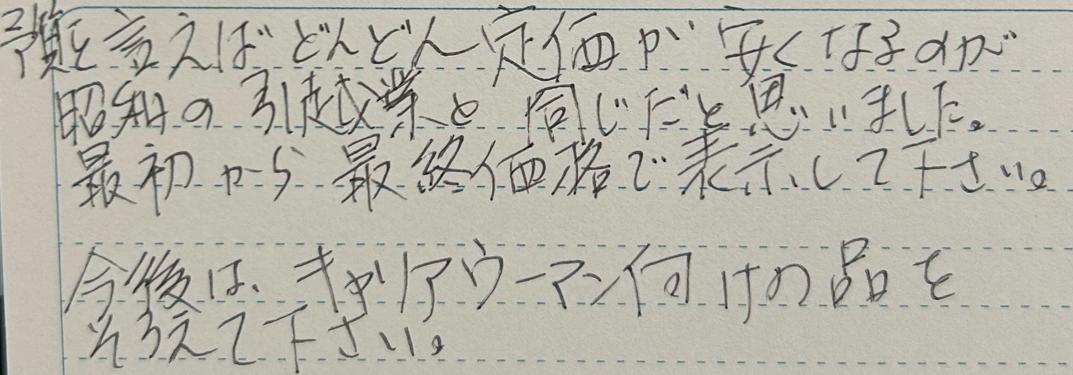 予算を言えばどんどん定価が安くなるのが
昭和の引越業と同じだと思いました。
最初から最終価格で表示して下さい。
今後は、キャリアウーマン向けの品を
そろえて下さい。